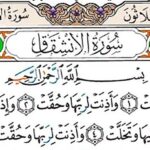 سُورَةُ الـ ـلَاثُونَ
سُورَةُ الانْشِقَاقِ
بِسْمِ اللَّهِ الرَّحْمَٰنِ الرَّحِيمِ
١ وَأَذِنَتْ لِرَبِّهَا وَحُقَّتْ ٢
ـيهَا وَتَخَلَّتْ ٤ وَأَذِنَتْ لِرَبِّهَا وَحُقَّتْ